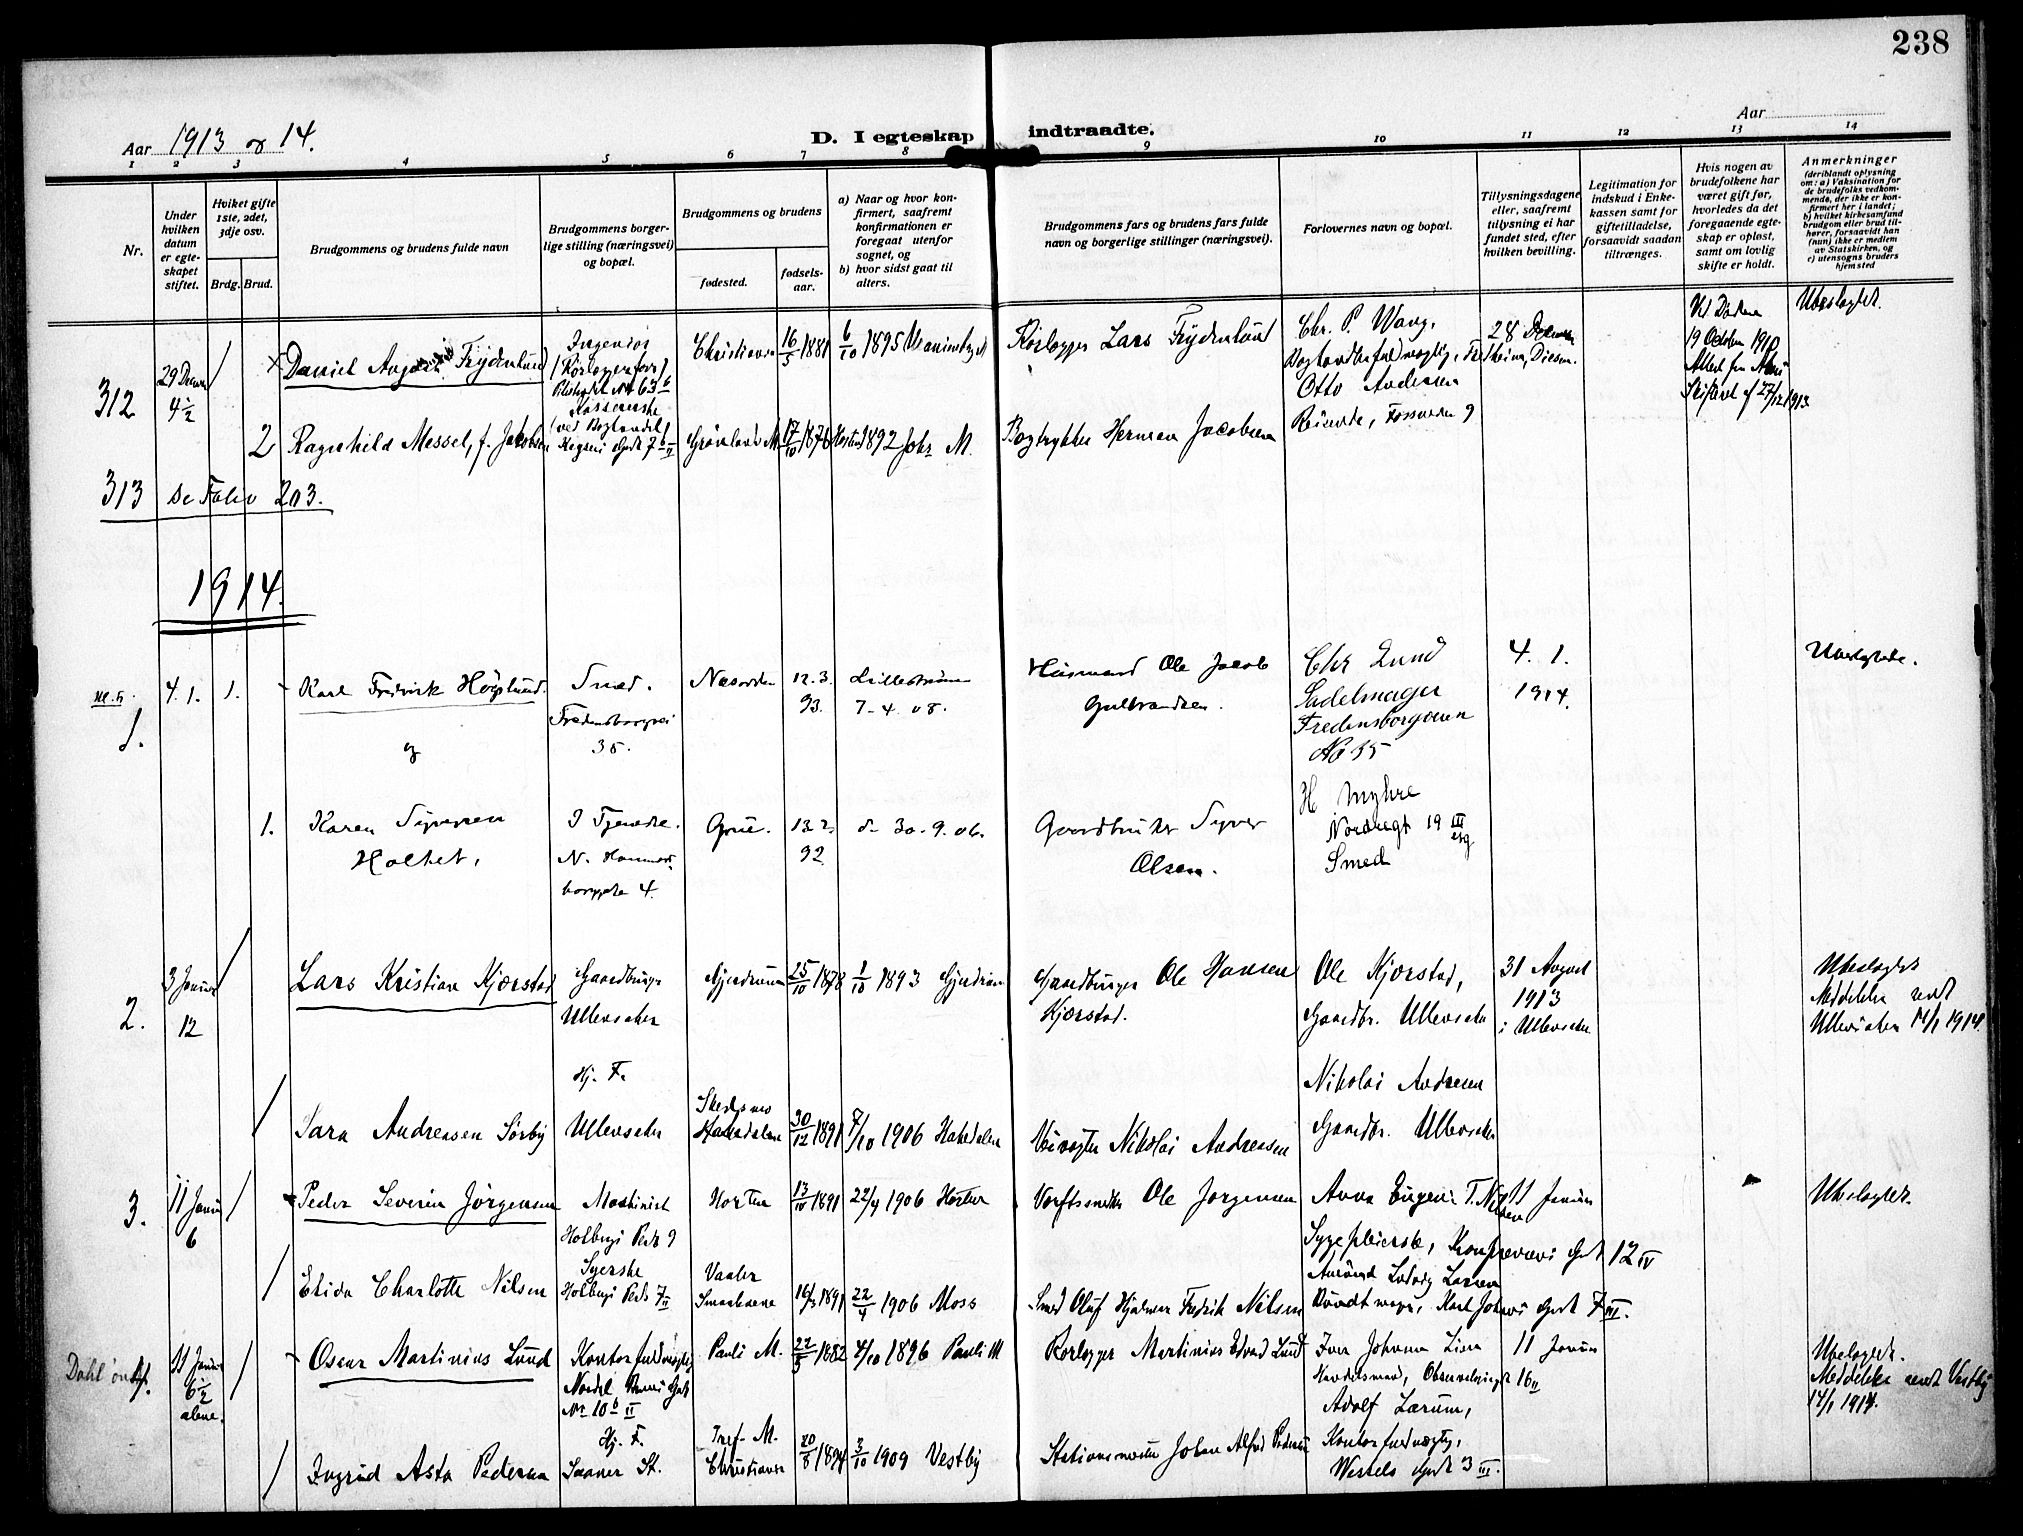 238
Aar 1913 og 14.
D. I egteskap indtraadte.
Aar
1 2 3 4 5 6 7 8 9 10 11 12 13 14
Nr.
Under hvilken datum er egteskapet stiftet.
Hviket gifte 1ste, 2det, 3dje osv.
Brdg. Brud.
Brudgommens og brudens fulde navn
Brudgommens borgerlige stilling (næringsvei) og bopæl.
Brudgommens og brudens
fødested.
fødselsaar.
a) Naar og hvor konfirmert, saafremt konfirmationen er foregaat utenfor sognet, og
b) hvor sidst gaat til alters.
Brudgommens fars og brudens fars fulde navn og borgerlige stillinger (næringsvei).
Forlovernes navn og bopæl.
Tillysningsdagene eller, saafremt tillysning ei har fundet sted, efter hvilken bevilling.
Legitimation for indskud i Enkekassen samt for giftetilladelse, forsaavidt saadan tiltrænges.
Hvis nogen av brudefolkene har været gift før, hvorledes da det foregaaende egteskap er opløst, samt om lovlig skifte er holdt.
Anmerkninger
(deriblandt oplysning om: a) Vaksination for de brudefolks vedkommende, der ikke er konfirmert her i landet; b) hvilket kirkesamfund brudgom eller brud tilhører, forsaavidt han (hun) ikke er medlem av Statskirken, og c) utensogns bruders hjemsted
312
4 1/2
Daniel Frydenlund
Ingeniør
Christiania
16/5 1881
6/10 1895
Rørlægger Lars Frydenlund
Chr. P. Wang,
Otto Andersen
28
19 October 1910
Ubeslægtet.
2 Ragnhild Messel, f. Jakobsen
Kasserske
Grønlands M.
17/10 1876
1892 Joh. M.
Bogtrykker Herman Jacobsen
313 se Folio 203.
1914.
1.
4. 1. 1.
Karl Fredrik Höglund.
og
Smed.
Fredensborgvei
35.
Nesodden
12. 3.
93.
Lillestrøm
7-4 08.
Husmand Ole Jacob
Gulbrandsen.
Chr Lund
Sadelmager
Fredensborgveien
No 35
4. 1.
1914.
Ubeslægtede.
1. Karen Syversen
Holthet,
Grue.
13 2.
92.
30. 9. 06.
Gaardbruker Syver
Olsen.
H Myhre
Nordregt 19 III
Smed
2.
3 Januar
12
Lars Kristian Kjærstad
Gaardbruger
Ullensaker
Gjerdrum
25/10 1878
1/10 1893 Gjerdrum
Gaardbruger Ole Hansen
Kjærstad.
Ole Kjærstad,
Gaardbr. Ullensaker
31 August
1913
i Ullensaker
Ubeslægtet
Meddelelse sendt
Ullensaker 14/1 1914.
Sara Andreasen Sörby
Hj. F.
Ullensaker
Skedsmo
Hakedalen
30/12 1891
7/10 1906 Hakedalen
Veivogter Nikolai Andreasen
Nikolai Andresen
Gaardbr. Ullensaker
3.
11 Januar
6
Peder Severin Jørgensen
Maskinist
Holbergs Plads 9
Horten
13/10 1891
22/4 1906 Horten
Verftssmed Ole Jørgensen
Anna Eugenie T. Nilsen
Sygepleierske, 12 IV
11 Januar
Ubeslægtet.
Elida Charlotte Nilsen
Syerske
Holbergs Plads 7 II
Vaaler
Smaalenene
1891
22/4 1906 Moss
Smed Oluf Hjalmar Fredrik Nilsen
Amund Ludvig Larsen
Karl Johans Gade 7 III.
4.
11 Januar
6 1/2
alene.
Oscar Martinius Lund
Kontorfuldmægtig
Nr 10 b II
Pauls M.
22/5 1882
4/10 1896 Pauls M
Rørlægger Martinius Edvard Lund
Iver Johann Lien
Handelsmand, 16 II
11 Januar
Ubeslægtet.
Meddelelse sendt Vestby
14/1 1914.
Ingrid Asta Pedersen
Hj. F.
Saaner St.
Tref. M.
Christiania
20/8 1894
3/10 1909 Vestby
Stationsmester Johan Alfred Pedersen
Adolf Lærum,
Kontorfuldmægtig,
Wessels Gade 3 III.